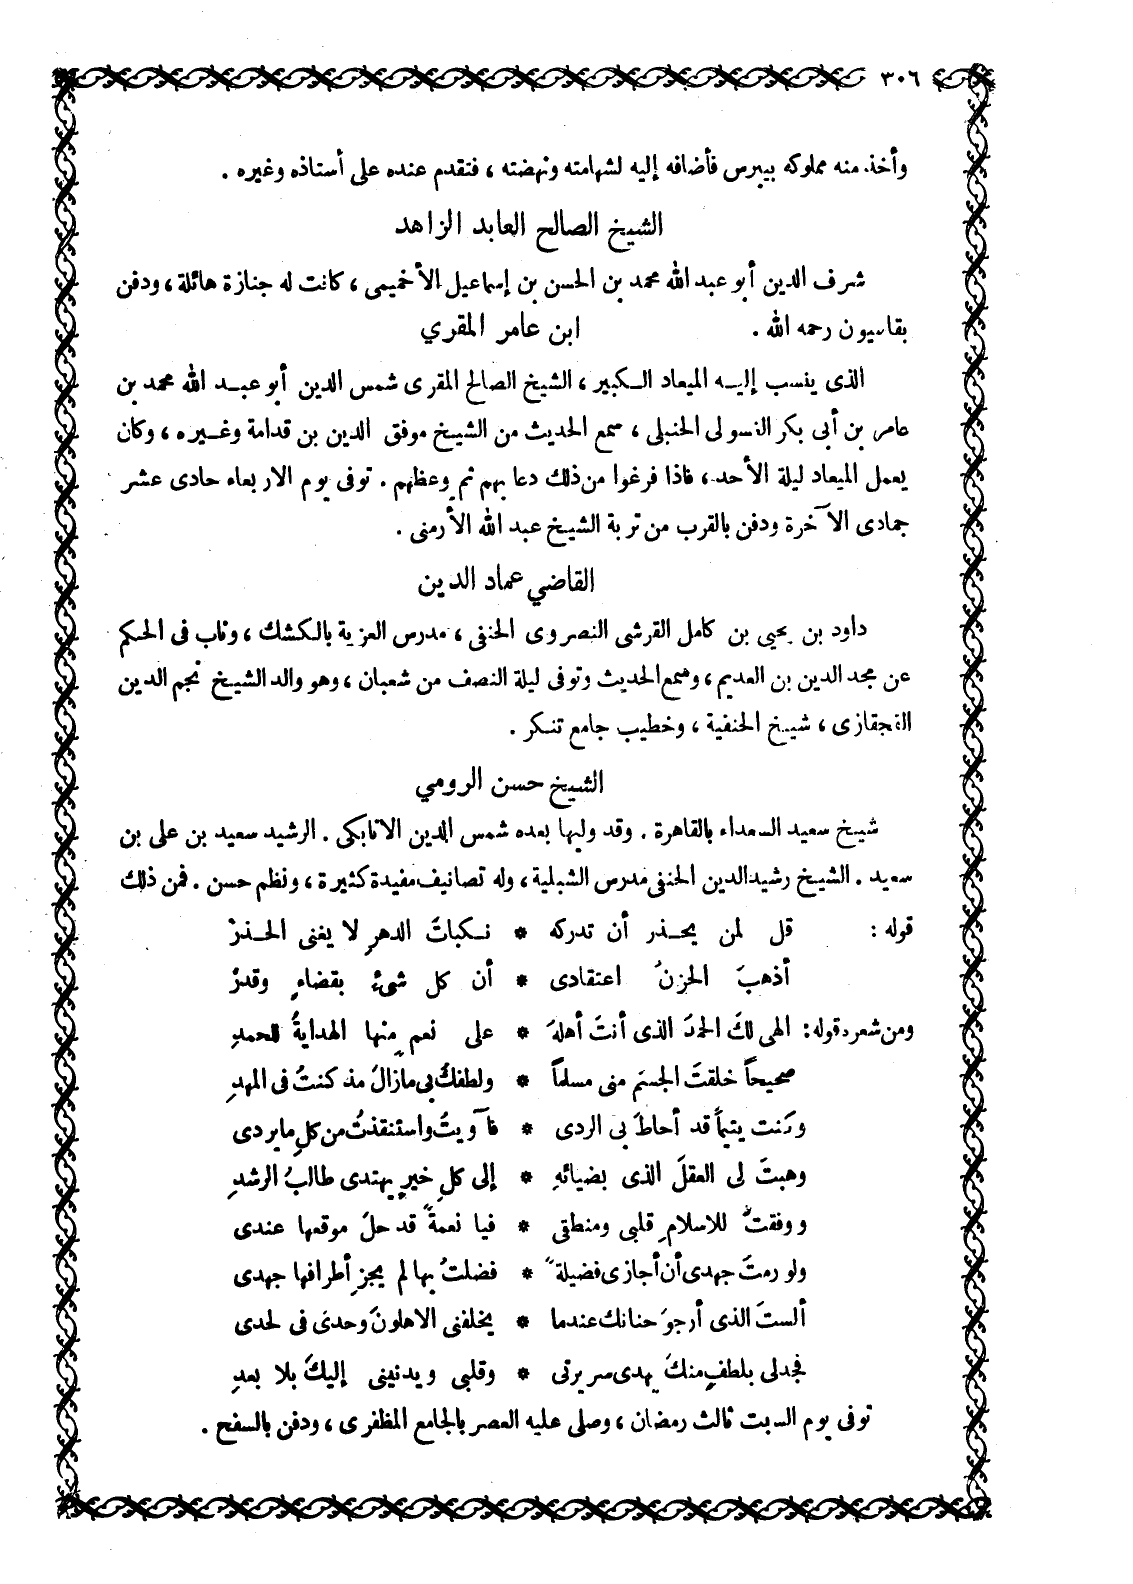 ٣٠٦
وأخذ منه مملوكه بيبرس فأضافه إليه لشهامته ونهضته ، فتقدم عنده على أستاذه وغيره .
الشيخ الصالح العابد الزاهد
شرف الدين أبو عبد الله محمد بن الحسن بن إسماعيل الأخميمى ، كانت له جنازة هائلة ، ودفن
بقاسيون رحمه الله . ابن عامر المقري
الذى ينسب إليه الميعاد الكبير ، الشيخ الصالح المقرى شمس الدين أبو عبد الله محمد بن
عامر بن أبى بكر الغسولى الحنبلى ، سمع الحديث من الشيخ موفق الدين بن قدامة وغيره ، وكان
يعمل الميعاد ليلة الأحد ، فاذا فرغوا من ذلك دعا بهم ثم وعظهم . توفى يوم الاربعاء حادى عشر
جمادى الآخرة ودفن بالقرب من تربة الشيخ عبد الله الأرمنى .
القاضي عماد الدين
داود بن يحيى بن كامل القرشى النصروى الحنفى ، مدرس العزية بالكشك ، وناب فى الحكم
عن مجد الدين بن العديم ، وسمع الحديث وتوفى ليلة النصف من شعبان ، وهو والد الشيخ نجم الدين
القجقازى ، شيخ الحنفية ، وخطيب جامع تنكر .
الشيخ حسن الرومي
شيخ سعيد السعداء بالقاهرة . وقد وليها بعده شمس الدين الاتابكى . الرشيد سعيد بن على بن
سعيد . الشيخ رشيد الدين الحنفى مدرس الشبلية ، وله تصانيف مفيدة كثيرة ، ونظم حسن . فمن ذلك
قوله : قل لمن يحذر أن تدركه * نكباتَ الدهرِ لا يغنى الحذرْ
أذهبَ الحزنُ اعتقادى * أن كل شىءٍ بقضاءٍ وقدرْ
ومن شعره قوله : الهى لكَ الحمدَ الذى أنتَ أهلهُ * على نعمٍ منها الهدايةُ للحمدِ
صحيحاً خلقتَ الجسمَ منى مسلماً * ولطفكَ بى مازالَ مذ كنتُ فى المهدِ
وكنت يتيماً قد أحاطَ بى الردى * فآويتُ واستنقذتُ من كلِ مايردى
وهبتَ لى العقلَ الذى بضيائهِ * إلى كلِ خيرٍ يهتدى طالبُ الرشدِ
ووفقتَ للاسلامِ قلبى ومنطقى * فيا نعمةً قد حلَ موقعها عندى
ولو رمتَ جهدى أن أجازى فضيلةً * فضلتُ بها لم يجز أطرافها جهدى
ألستَ الذى أرجوَ حنانك عندما * يخلفنى الاهلونَ وحدى فى لحدى
فجدلى بلطفٍ منكَ يهدى سريرتى * وقلبى ويدنينى إليكَ بلا بعدِ
توفى يوم السبت ثالث رمضان ، وصلى عليه العصر بالجامع المظفرى ، ودفن بالسفح .